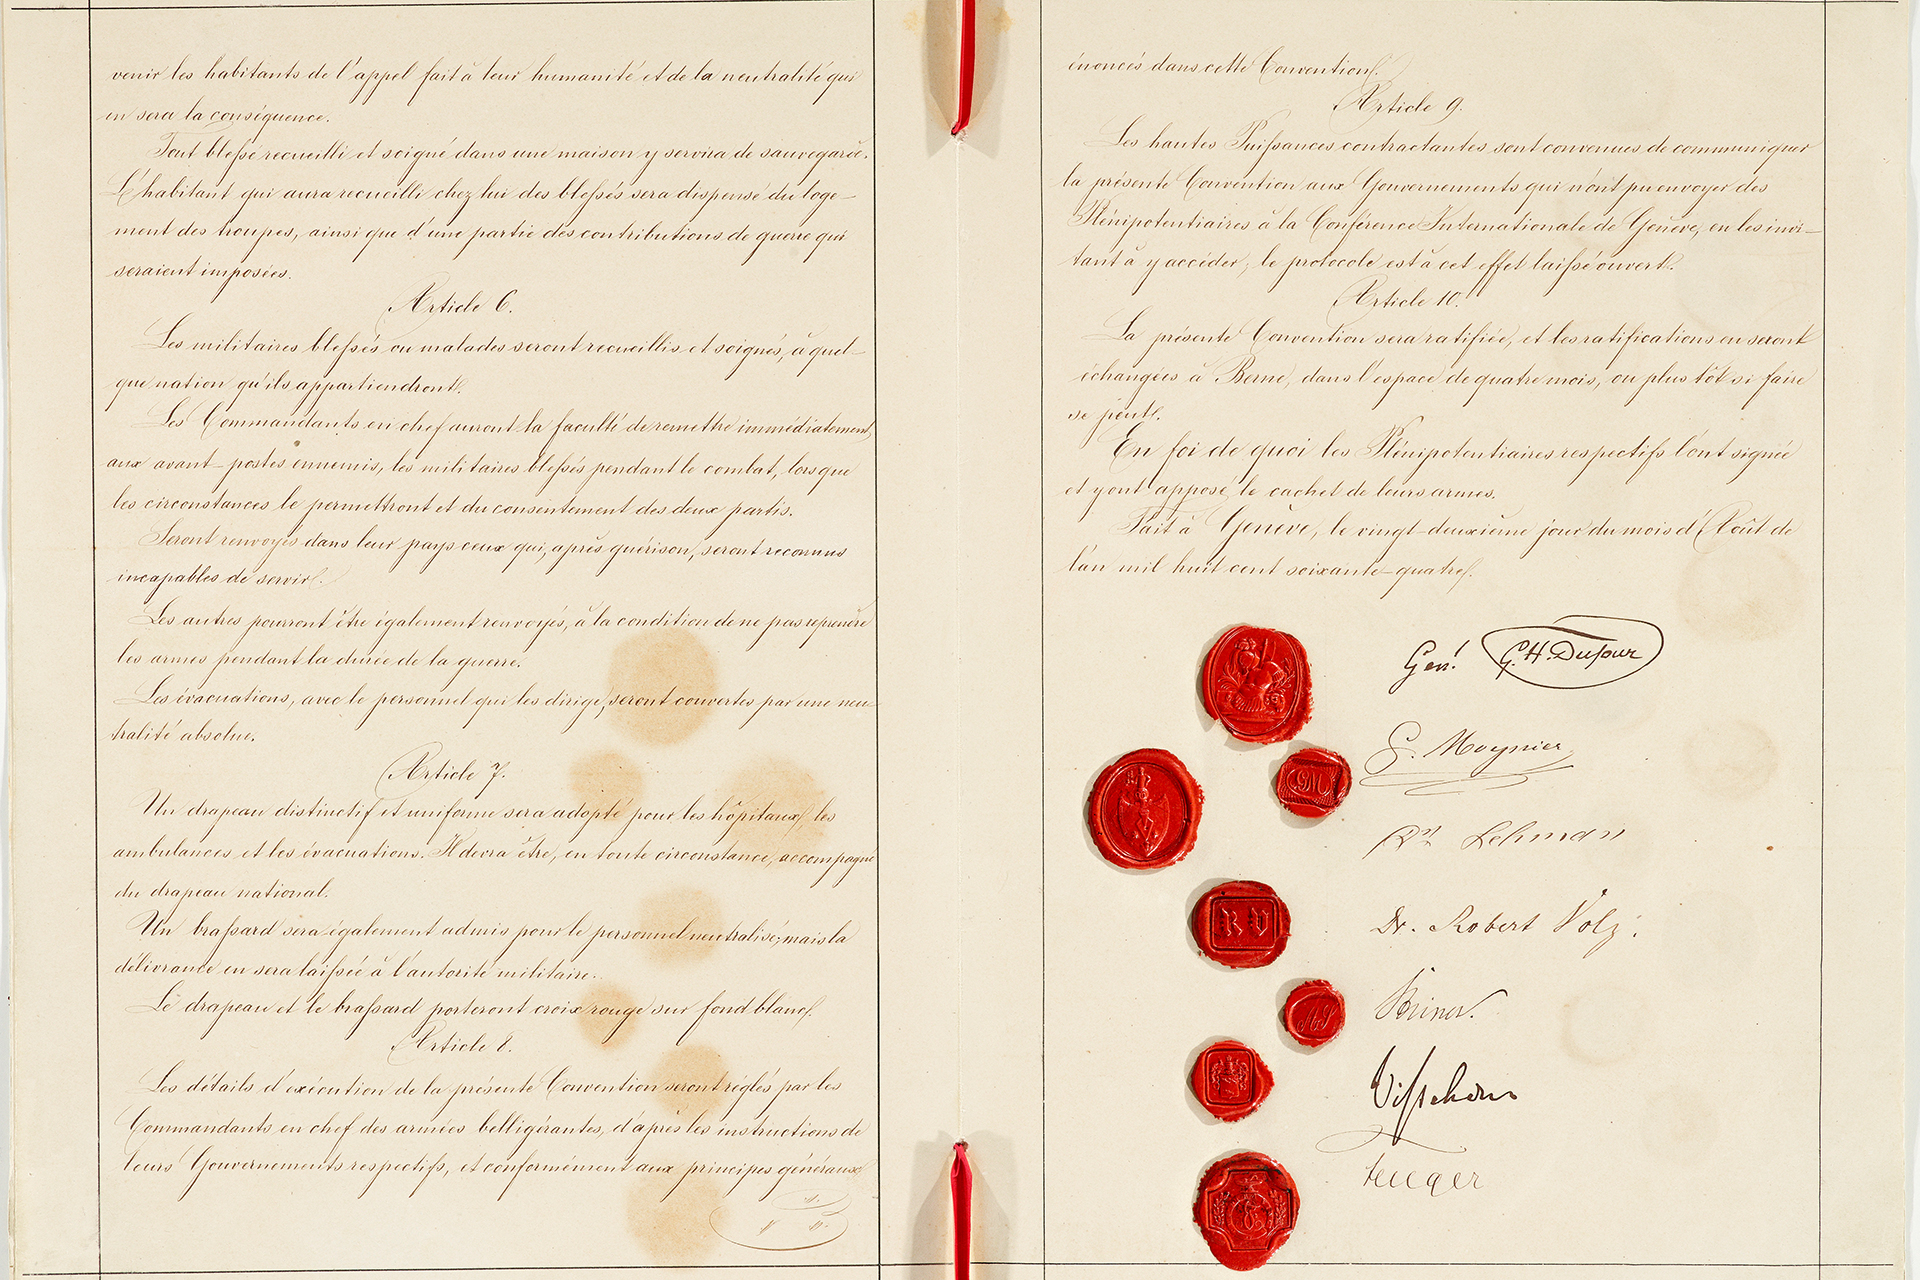 venir les habitants de l'appel fait à leur humanité et de la neutralité qui
en sera la conséquence.
Tout blessé recueilli et soigné dans une maison y servira de sauvegarde.
L'habitant qui aura recueilli chez lui des blessés sera dispensé du loge-
ment des troupes, ainsi que d'une partie des contributions de guerre qui
seraient imposées.
Article 6.
Les militaires blessés ou malades seront recueillis et soignés, à quel-
que nation qu'ils appartiendront.
Les Commandants en chef auront la faculté de remettre immédiatement
aux avant-postes ennemis, les militaires blessés pendant le combat, lorsque
les circonstances le permettront et du consentement des deux partis.
Seront renvoyés dans leur pays ceux qui, après guérison, seront reconnus
incapables de servir.
Les autres pourront être également renvoyés, à la condition de ne pas reprendre
les armes pendant la durée de la guerre.
Les évacuations, avec le personnel qui les dirige, seront couvertes par une neu-
tralité absolue.
Article 7.
Un drapeau distinctif et uniforme sera adopté pour les hôpitaux, les
ambulances et les évacuations. Il devra être, en toute circonstance, accompagné
du drapeau national.
Un brassard sera également admis pour le personnel neutralisé; mais la
délivrance en sera laissée à l'autorité militaire.
Le drapeau et le brassard porteront croix rouge sur fond blanc.
Article 8.
Les détails d'exécution de la présente Convention seront réglés par les
Commandants en chef des armées belligérantes, d'après les instructions de
leurs Gouvernements respectifs, et conformément aux principes généraux
énoncés dans cette Convention.
Article 9.
Les hautes Puissances contractantes sont convenues de communiquer
la présente Convention aux Gouvernements qui n'ont pu envoyer des
Plénipotentiaires à la Conférence Internationale de Genève, en les invi-
tant à y accéder; le protocole est à cet effet laissé ouvert.
Article 10.
La présente Convention sera ratifiée, et les ratifications en seront
échangées à Berne, dans l'espace de quatre mois, ou plus tôt si faire
se peut.
En foi de quoi les Plénipotentiaires respectifs l'ont signée
et y ont apposé le cachet de leurs armes.
Fait à Genève, le vingt-deuxième jour du mois d'Août de
l'an mil huit cent soixante-quatre.
Genl. G.H. Dufour
G. Moynier
GM
Dr Lehman
Dr. Robert Volz.
RV
Steiner.
AS
Visschers
Fenger